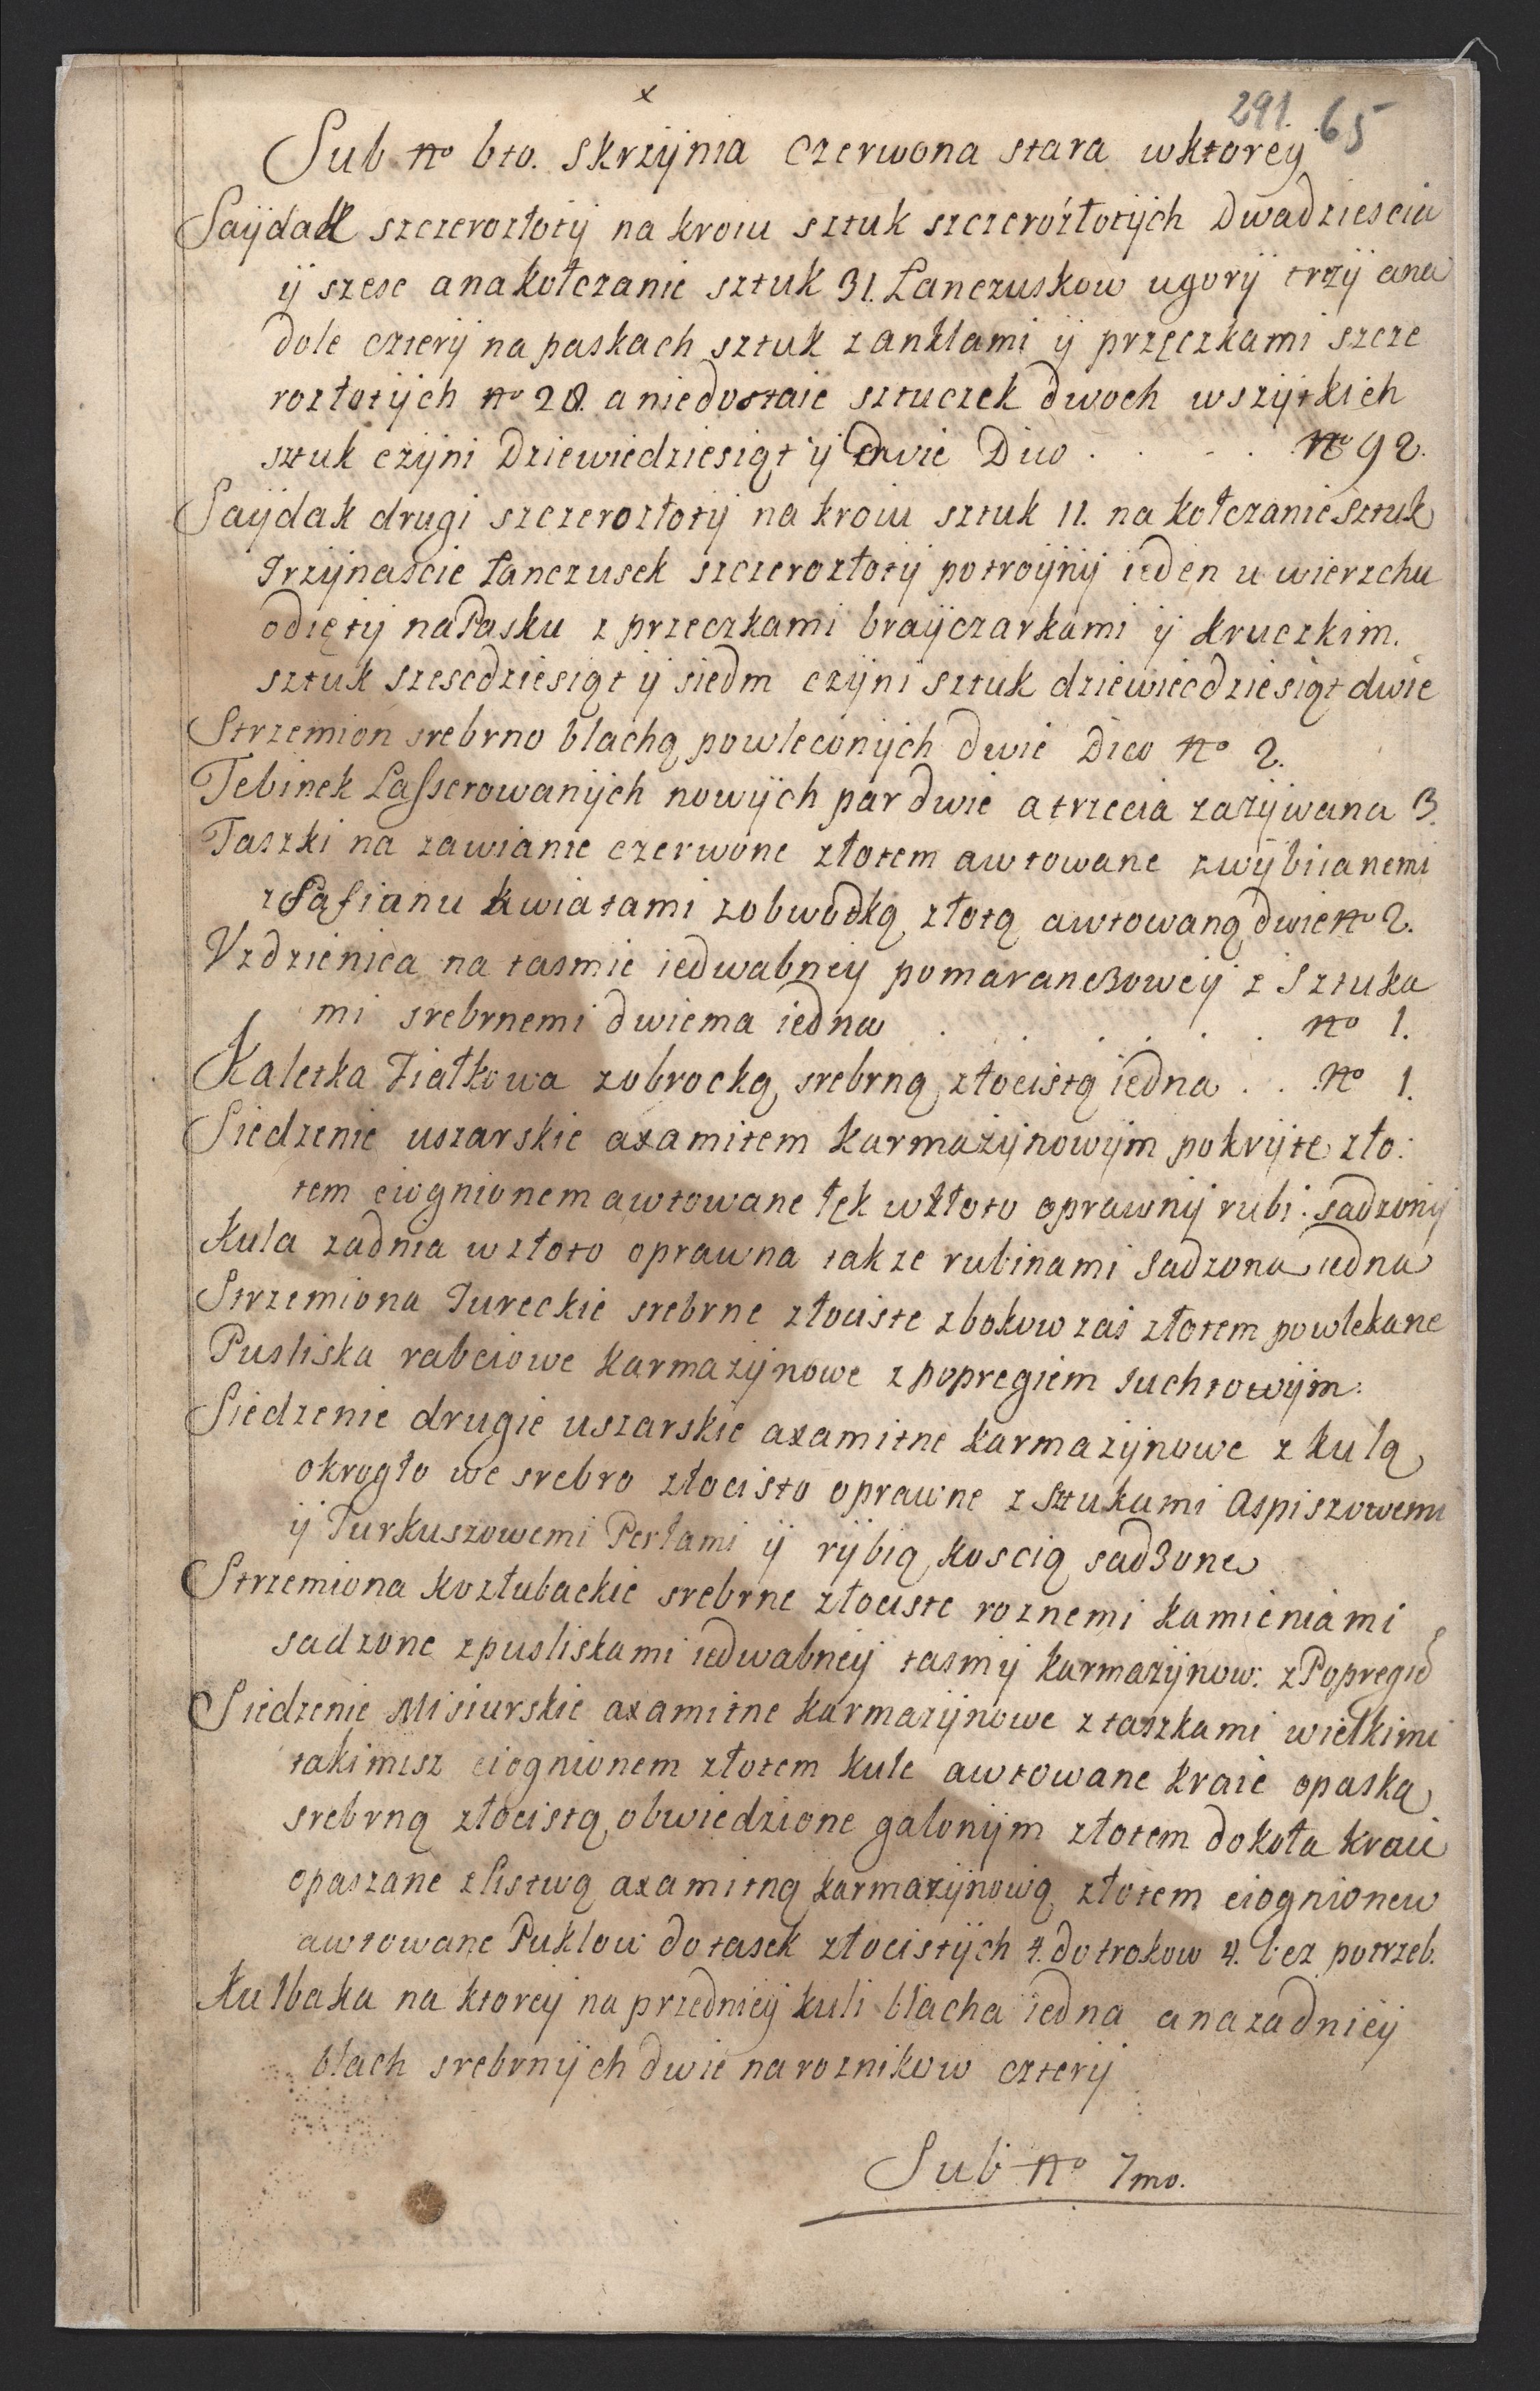 x
291. 65
Sub no 6to. skrzÿnia czerwona stara wktoreÿ
Saÿdak szczerozłotÿ na kroiu sztuk szczerozłotÿch Dwadziescia
ÿ szesc anakołczanie sztuk 31. Łanczuskow ugorÿ trzÿ ana
dole czterÿ na paskach sztuk zankłami ÿ przęczkami szcze
rozłotÿch no 28. a niedostaie sztuczek dwoch wszÿtkich
sztuk czÿni Dziewiedziesiąt ÿ dwie Dico . . . . No 92.
Saÿdak drugi szczerozłotÿ na kroiu sztuk 11. na kołczanie sztuk
Trzÿnascie łanczusek szczerozłotÿ potroÿnÿ ieden u wierzchu
odięty naPasku z przeczkami braÿczarkami ÿ kruczkim.
sztuk szescdziesiąt ÿ siedm czÿni sztuk dziewiecdziesiąt dwie
Strzemion srebrno blachą powleconÿch dwie Dico no 2.
Tebinek Lasserowanÿch nowÿch par dwie a trzecia zazÿwana 3.
Taszki na zawianie czerwone złotem awtowane zwÿbiianemi
z Safianu kwiatami zobwodką złotą awtowaną dwie no 2.
Vzdzienica na tasmie iedwabneÿ pomaranczoweÿ z Sztuka
mi srebrnemi dwiema iedna . . . . . . no 1.
Kaletka Fiałkowa zobrocką srebrną złocistą iedna . . no 1.
Siedzenie uszarskie axamitem karmazÿnowÿm pokrÿte zło:
tem ciognionem awtowane łęk wzłoto oprawnÿ rubi. sadzonÿ
Kula zadnia w złoto oprawna takze rubinami sadzona iedna
Strzemiona Tureckie srebrne złociste zbokow zas złotem powlekane
Pusliska rabciowe karmazÿnowe z popregiem Juchtowÿm.
Siedzenie drugie uszarskie axamitne karmazÿnowe z kulą
okrogło we srebro złocisto oprawne z sztukami Aspiszowemi
ÿ Turkuszowemi Perłami ÿ rÿbią koscią sadzone
Strzemiona kozłubackie srebrne złociste roznemi kamieniami
sadzone zpusliskami iedwabneÿ tasmÿ karmazÿnow: zPopregie
Siedzenie Misiurskie axamitne karmazÿnowe z taszkami wielkimi
takimisz ciognionem złotem kule awtowane kraie opaską
srebrną złocistą obwiedzione galonÿm złotem dokoła kraii
opaszane zlistwą axamitną karmazÿnową złotem ciognionem
awtowane Puklow do tasek złocistÿch 4. do trokow 4. bez potrzeb.
Kulbaka na ktoreÿ na przednieÿ kuli blacha iedna anazadnieÿ
blach srebrnÿch dwie naroznikow czterÿ
Sub no 7mo.